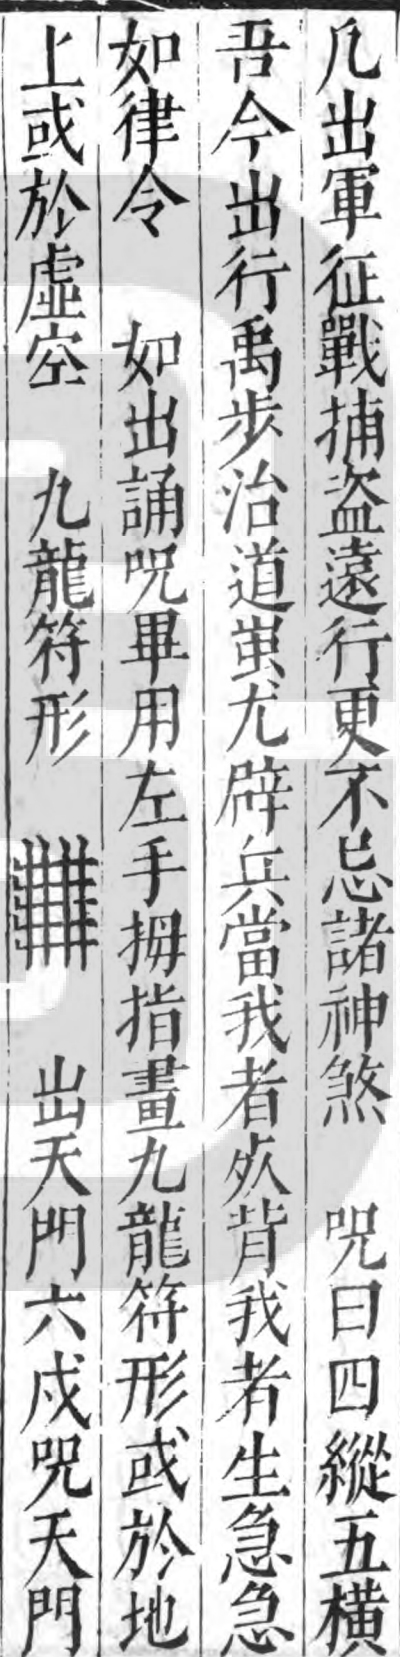 凢出軍征戰捕盗遠行更不忌諸神煞　呪曰四縱五橫
吾今出行禹步治道蚩尤辟兵當我者死背我者生急急
如律令　如出誦呪畢用左手拇指畫九龍符形或於地
上或於虛空　九龍符形　出天門六戍呪天門